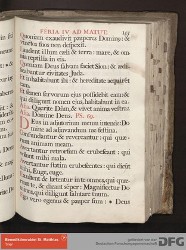 FERIA IV AD MATUT.
quoniam exaudivit pauperes Dominus: &
vinctos suos non despexit.
Laudent illum cæli & terra: mare, & om-
nia reptilia in eis.
Quoniam Deus salvam faciet Sion: & ædi-
ficabuntur civitates Juda.
Et inhabitabunt ibi: & hereditate acquirent
eam.
Et semen servorum ejus possidebit eam: &
qui diligunt nomen ejus, habitabunt in ea.
Quærite Dñm, & vivet anima vestra.
Domine Deus. Ps. 69.
Deus in adjutorium meum intende: Do-
mine ad adjuvandum me festina.
Confundantur & revereantur: qui quæ-
runt animam meam.
Avertantur retrorsum & erubescant: qui
volunt mihi mala.
Avertantur statim erubescentes: qui dicunt
mihi, Euge, euge.
Exultent & lætentur in te omnes qui quæ-
runt te, & dicant semper: Magnificetur Do-
minus, qui diligunt salutare tuum.
Ego vero egenus & pauper sum: * Deus